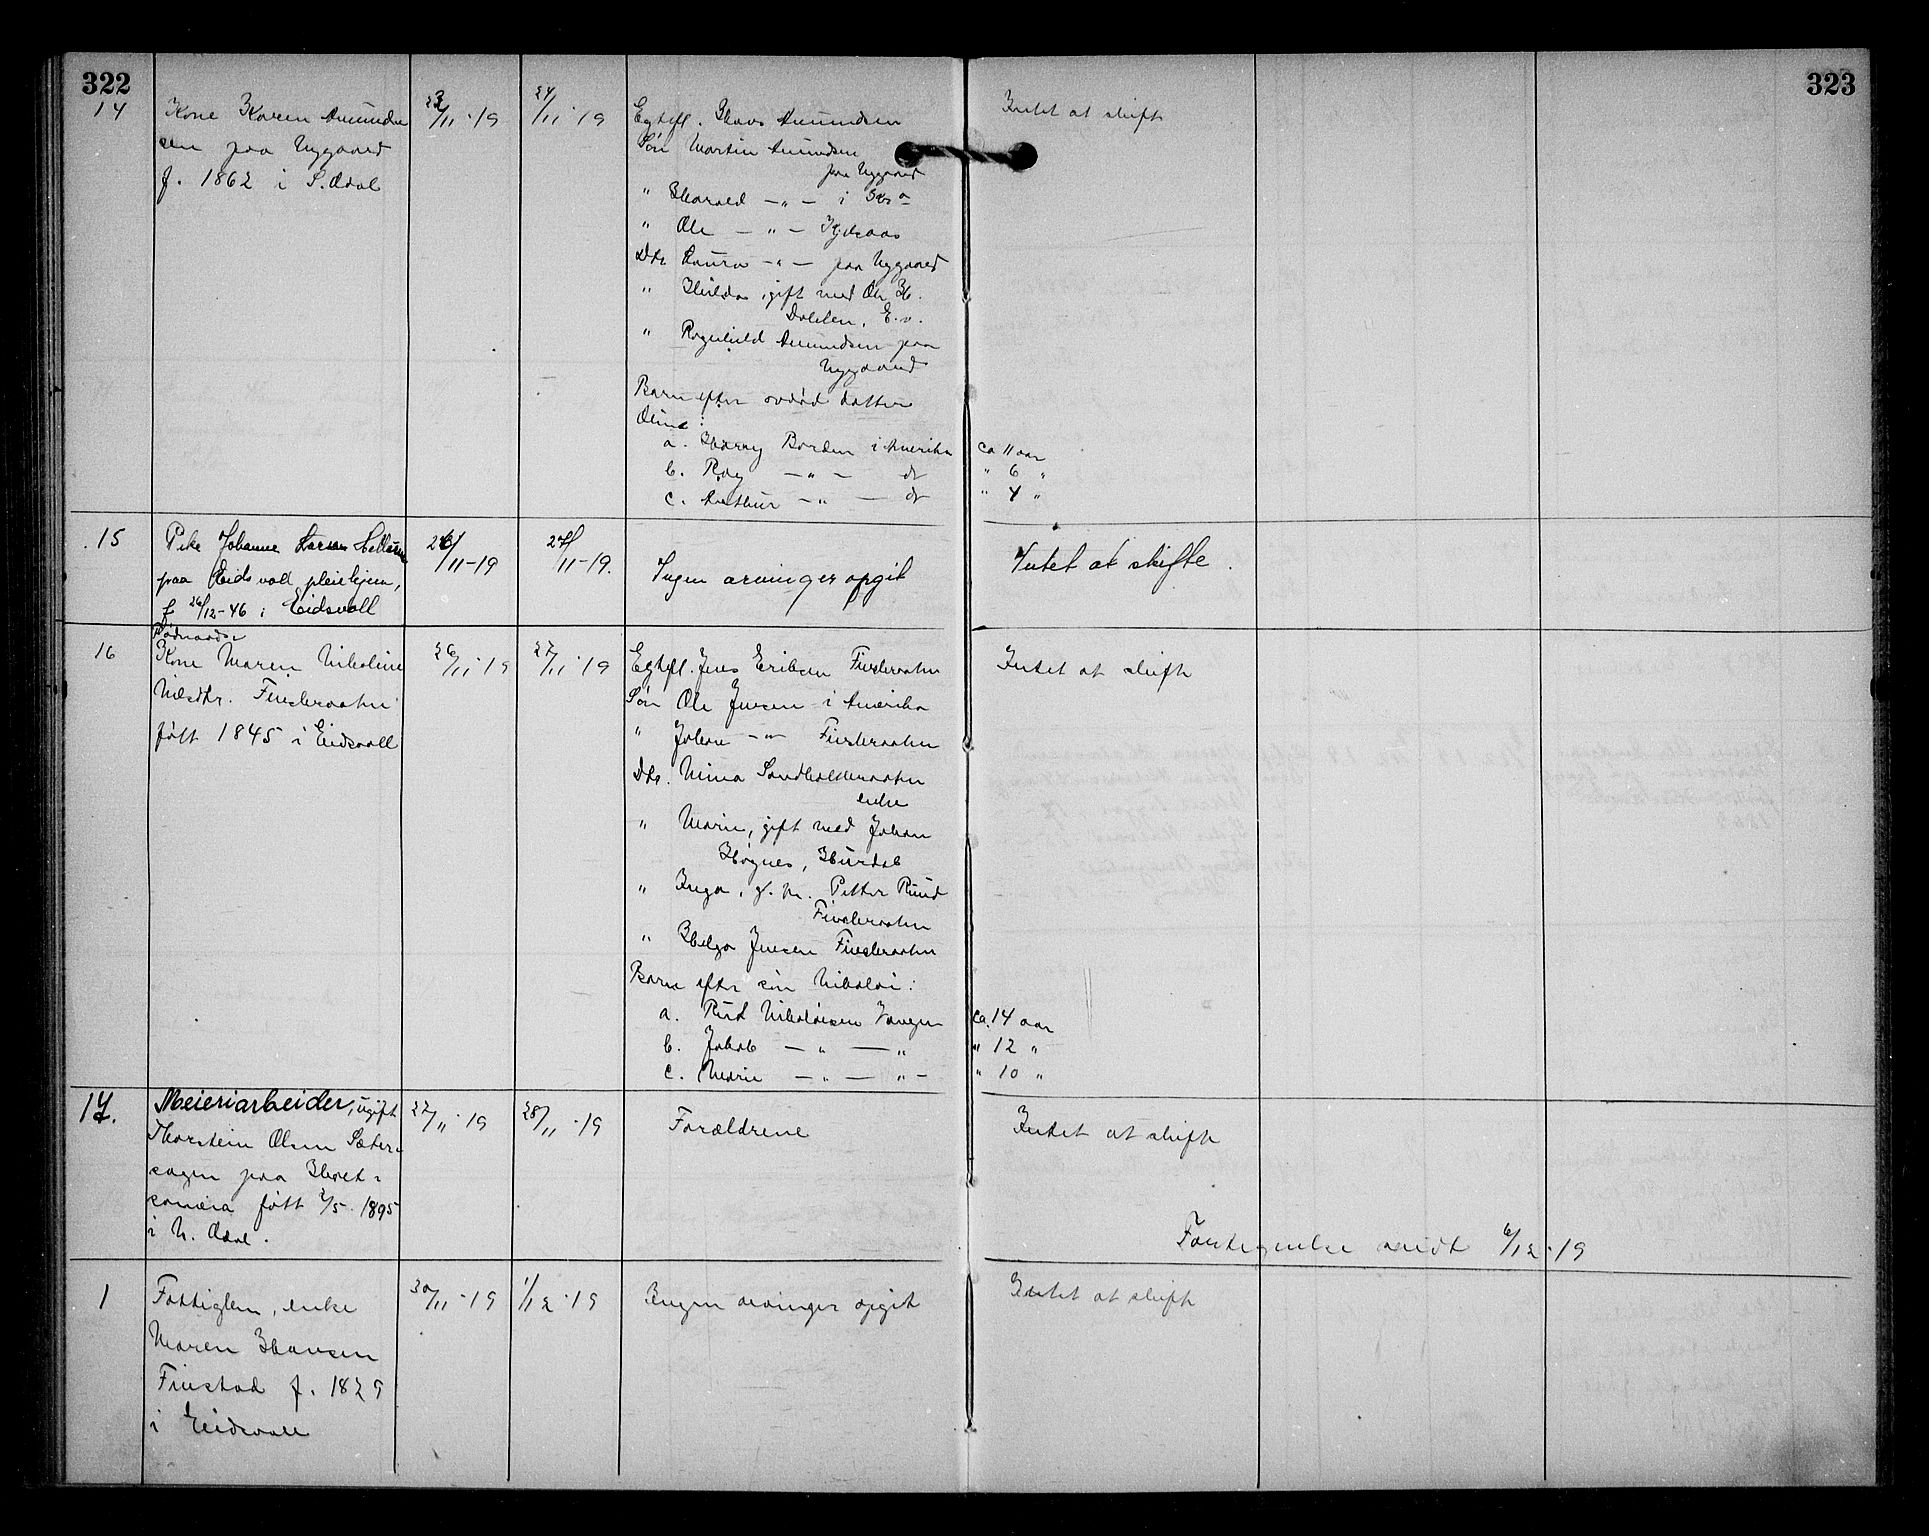 322
323
14
Kone Karen Amundsen
paa Nygaard
f. 1862 i S. Odal
23/11-19
24/11-19
Egtefl. Hans Amundsen
Søn Martin Amundsen
paa Nygaard
" Harald -"- i
" Ole -"-
Dtr. Laura -"- paa Nygaard
" Hilda, gift med Ole H.
Dahlen, E.v.
" Ragnhild Amundsen paa
Nygaard
Barn efter avdød datter
Oline:
a. Harry Borden i Amerika ca 11 aar
b. Roy -"- do " 6 "
c. Arthur -"- do " 4 "
Intet at skifte
15
Pike Johanne Larsen
paa Eidsvoll pleiehjem,
f 26/12-46 i Eidsvoll
/11-19
27/11-19.
Ingen arvinger opgit
Intet at skifte.
16
Kone Maren Nikoline
Nilsdtr.
født 1845 i Eidsvoll
26/11-19
27/11-19
Egtefl. Jens Eriksen
Søn Ole Jensen i Amerika
" Johan -"-
Dtr. Mina
enke
" Marie, gift med Johan
Høgnes, Hurdal
" Inga, g. m. Petter Ruud
" Helga Jensen
Barn efter søn Nikolai:
a. Nikolaisen ca. 14 aar
b. Jakob -"- " " 12 "
c. Marie -"- " - " 10 "
Intet at skifte
17.
Meieriarbeider, ugift
Thorstein Olsen Sæter-
sagen paa
født /5-1895
i N. Odal.
27/11-19
28/11-19
Forældrene
Intet at skifte
Fortegnelse sendt 6/12-19
1
Fattiglem, enke
Maren Hansen
Finstad f. 1829
i Eidsvoll
30/11-19
1/12-19
Ingen arvinger opgit
Intet at skifte